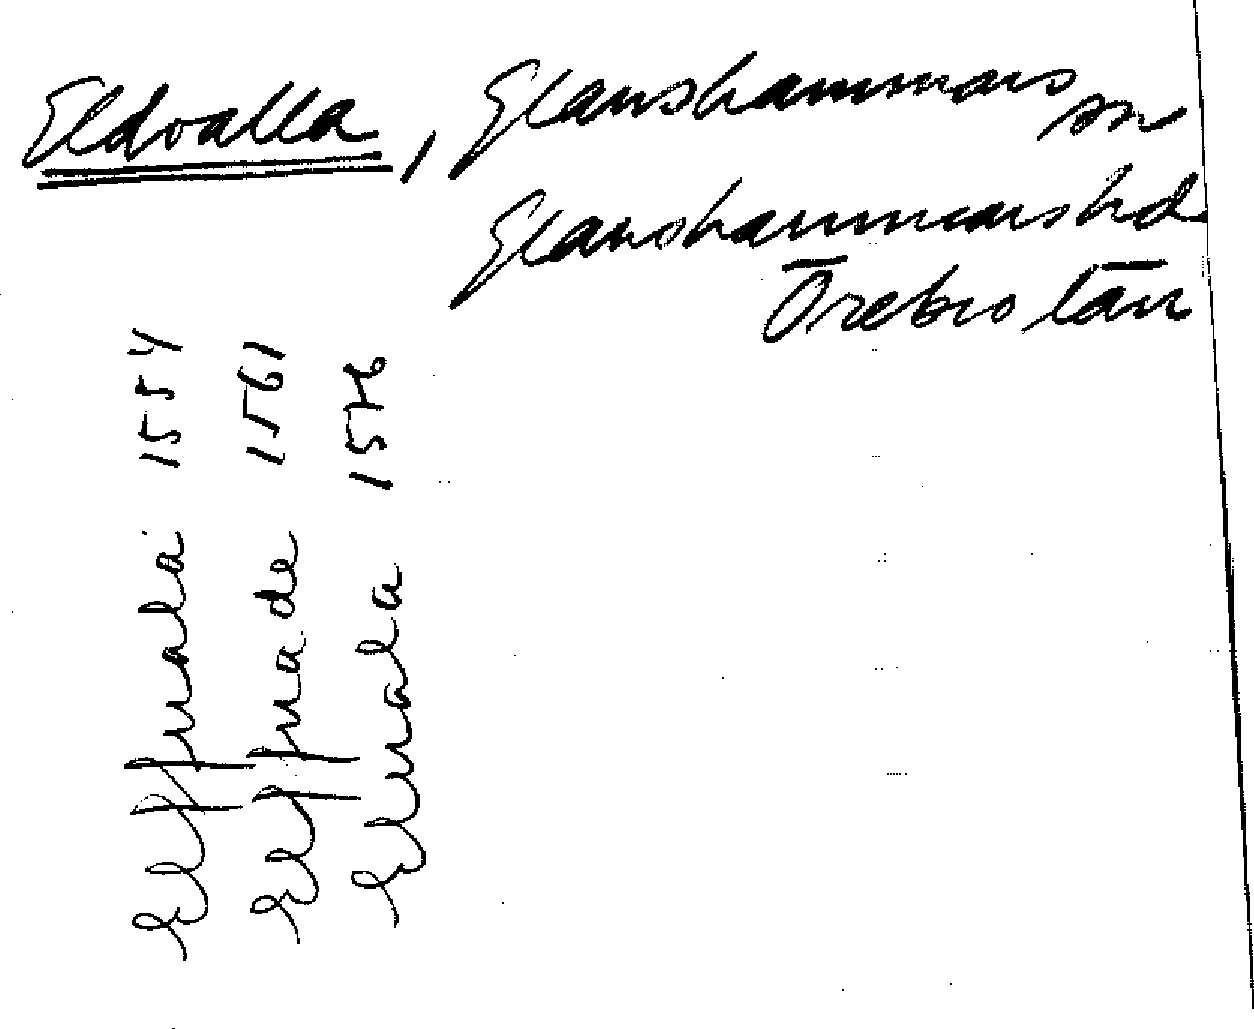 Eldvalla, Glanshammars
sn
Glanshammars hd
Örebro län
Elffuala 1554
Elffua de 1561
Elluala 1576